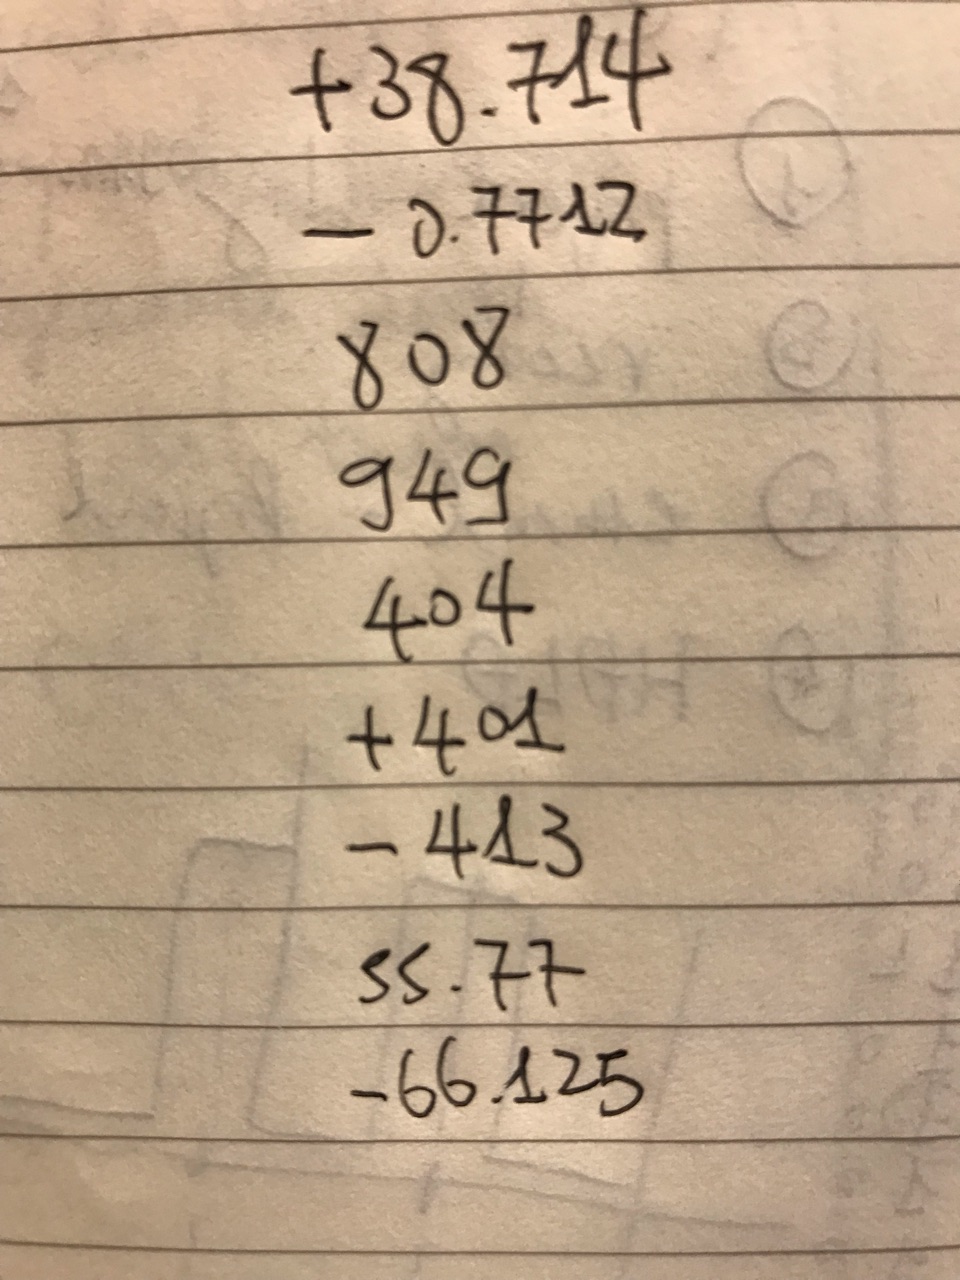 +38.714
- 0.7712
808
949
404
+401
- 413
55.77
-66.125